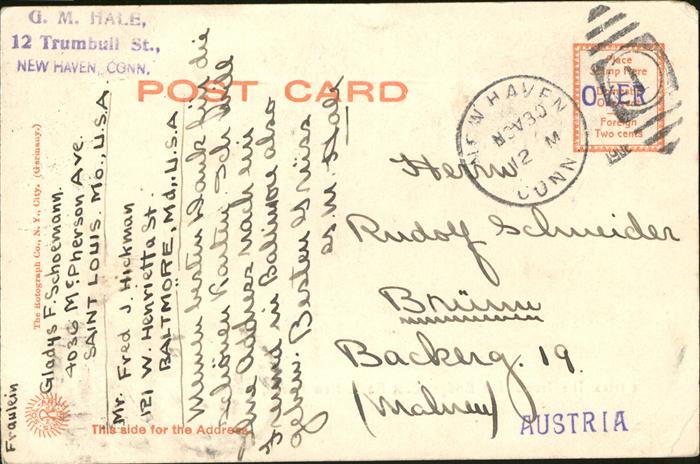 G. M. HALE,
12 Trumbull St.,
NEW HAVEN, CONN.
POST CARD
Place
Stamp Here
Domestic
One
Foreign
Two cents
OVER
NEW HAVEN
NOV 30
12 M
CONN
Herrn
Rudolf Schneider
Brünn
Backerg. 19.
AUSTRIA
This side for the Address
The Rotograph Co., N. Y., City. (Germany.)
Fraulein
Gladys F. Schoemann.
4036 McPherson Ave.
SAINT LOUIS. Mo., U.S.A
Mr. Fred J. Hickman
121 W. Henrietta St
BALTMORE, Md., U.S.A
Meinen besten Dank für die
schönen Karten. Ich
eine Address nach ein
Freund in Baltimore also
geben. Besten
G. M. Hale